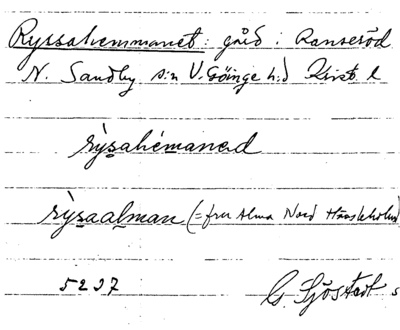 Ryssahemmanet: gård i Ranseröd
N. Sandby s:n V. Göinge h:d Krist. l
rỳsahémanəd
rỳsaalman (= fru Alma Nord Hässleholm)
5237 G. Sjöstedt s